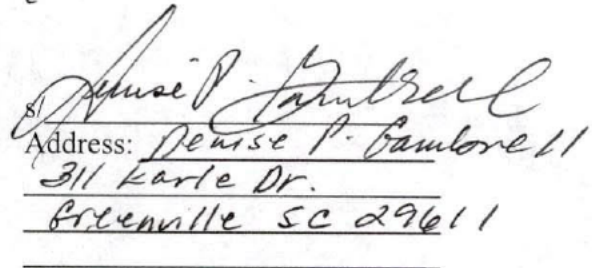 s/ Denise P. Gambrell
Address: Denise P. Gambrell
311 Karle Dr.
Greenville SC 29611